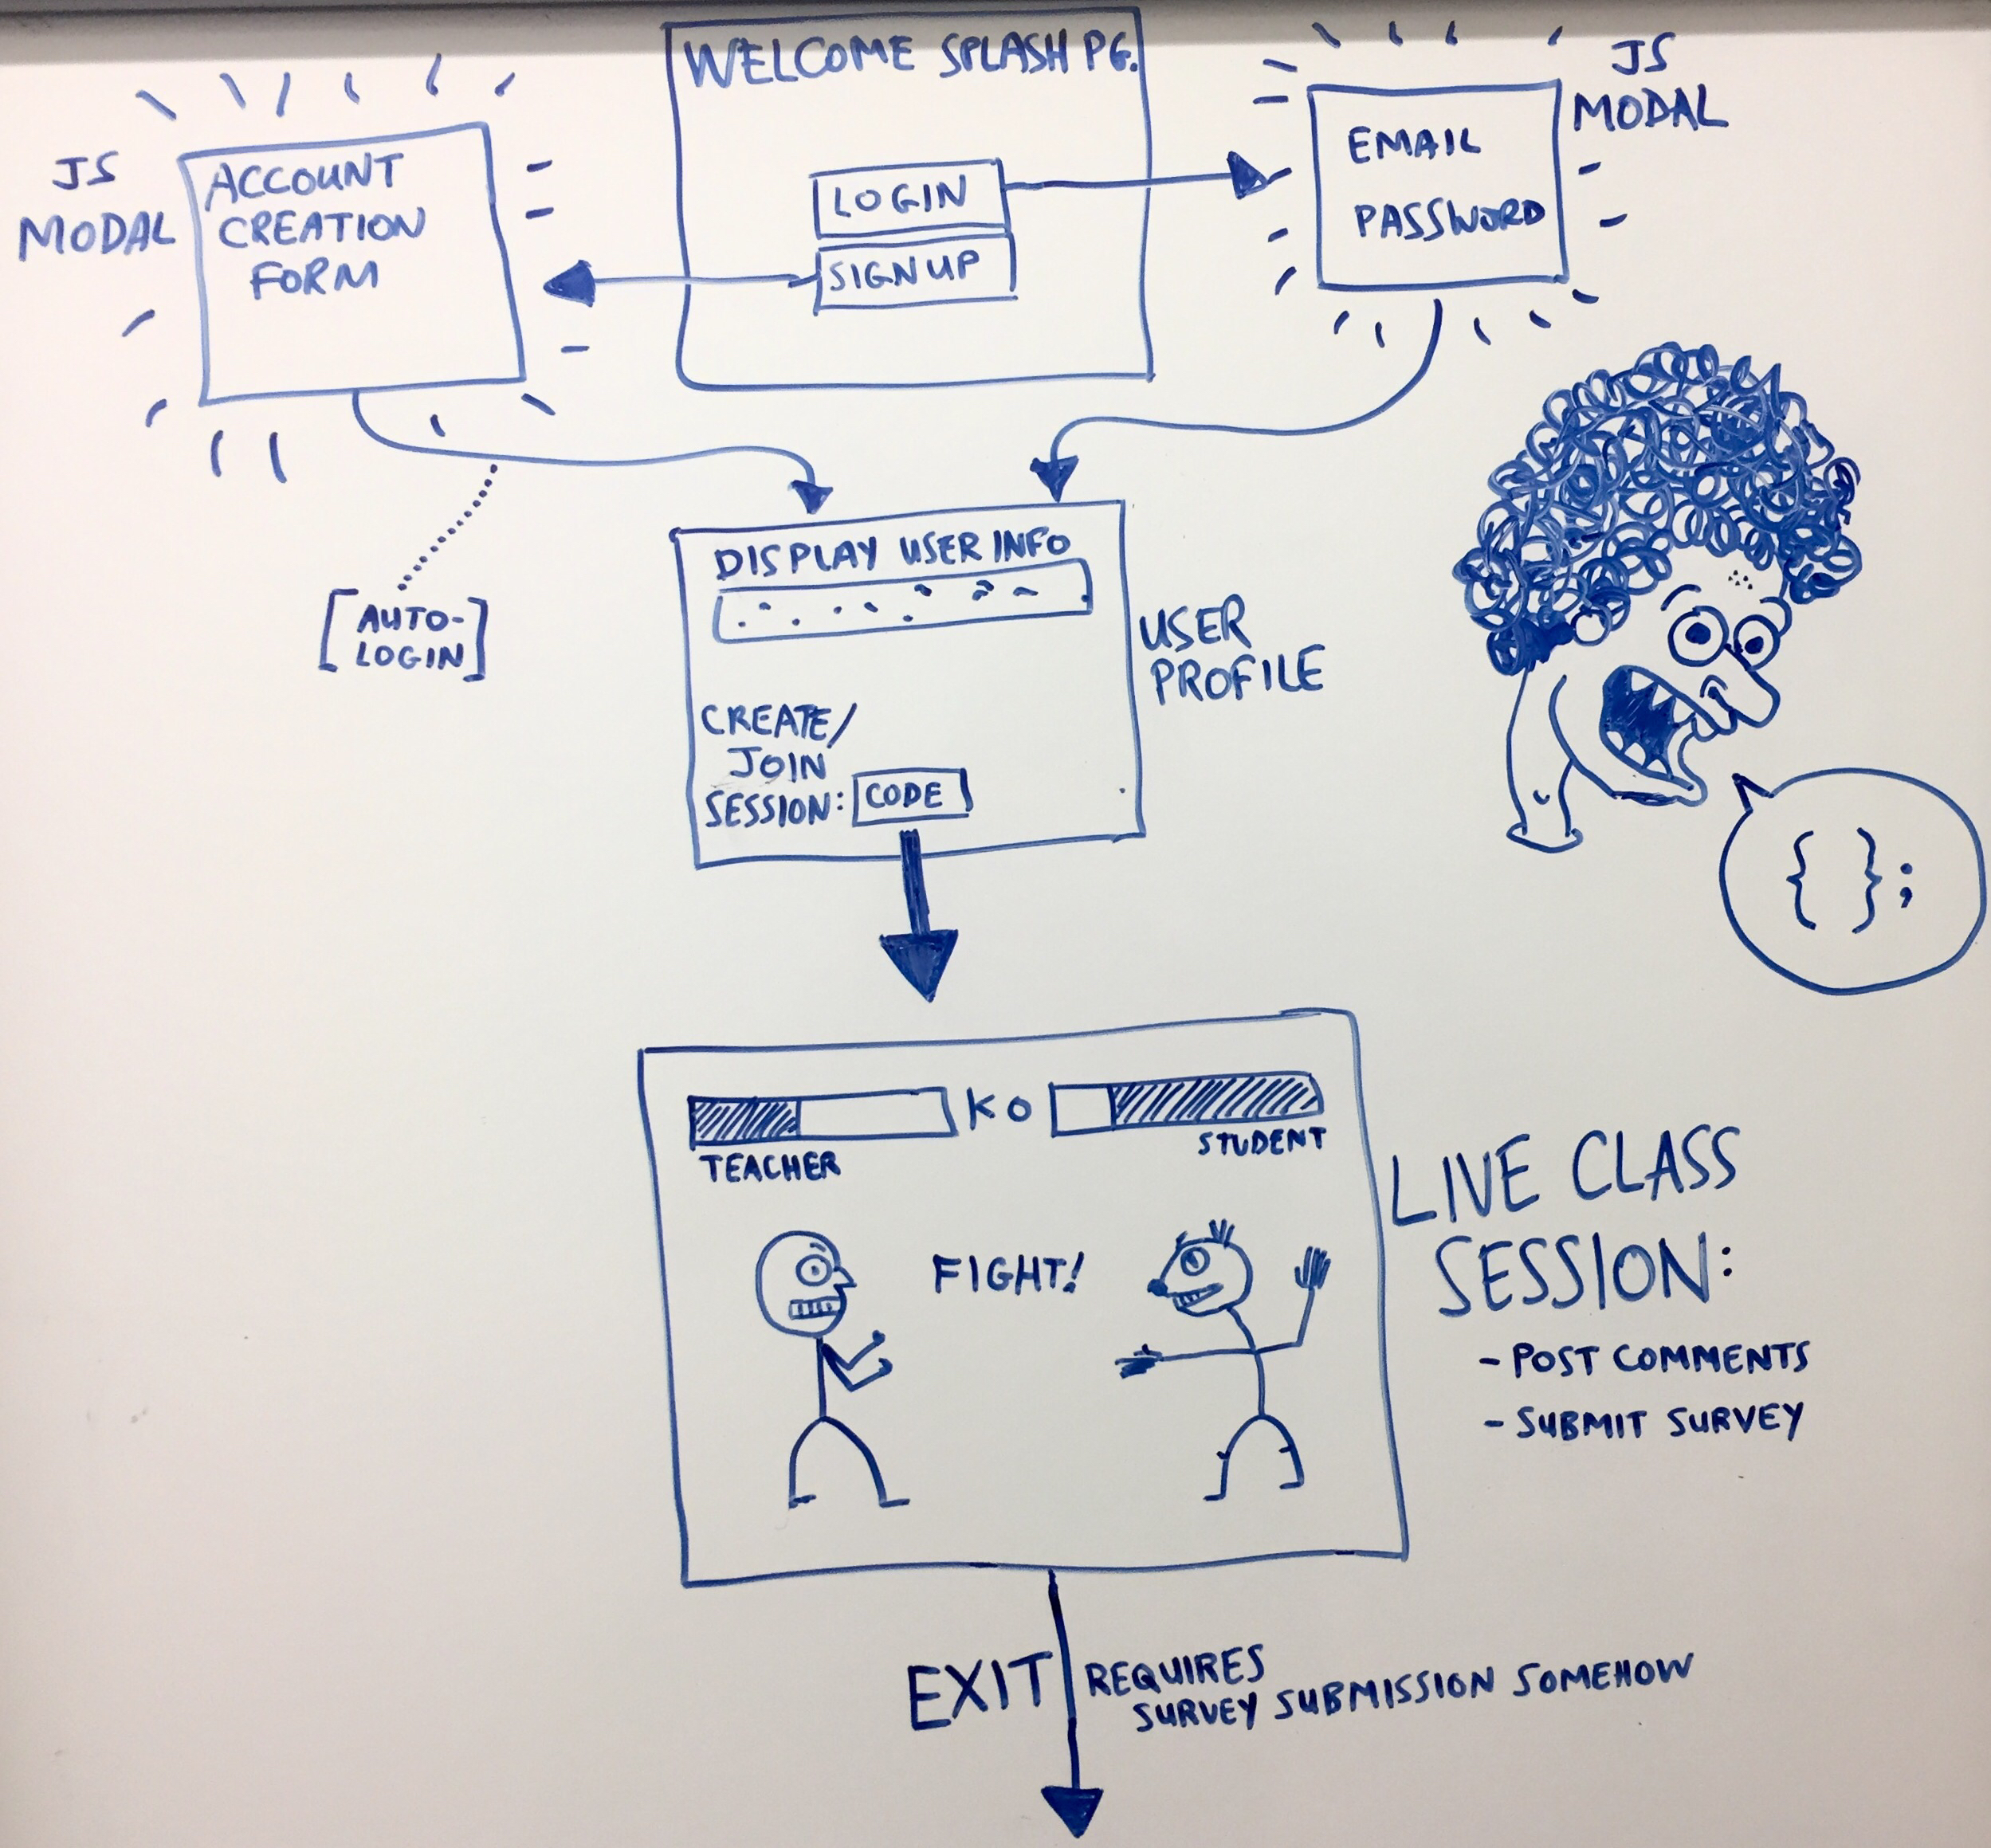 WELCOME SPLASH PG.
LOGIN
SIGNUP
JS
MODAL
ACCOUNT
CREATION
FORM
JS
MODAL
EMAIL
PASSWORD
[AUTO-
LOGIN]
DISPLAY USER INFO
CREATE/
JOIN
SESSION: CODE
USER
PROFILE
{ };
KO
TEACHER
STUDENT
FIGHT!
LIVE CLASS
SESSION:
- POST COMMENTS
- SUBMIT SURVEY
EXIT
REQUIRES
SURVEY SUBMISSION SOMEHOW